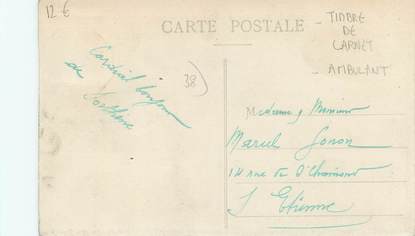 12 €
CARTE POSTALE
- TIMBRE
DE
CARNET
- AMBULANT
38
Cordial bonjour
de
Madame, Monsieur
Marcel Gonon
14 rue de St Chamond
St Etienne